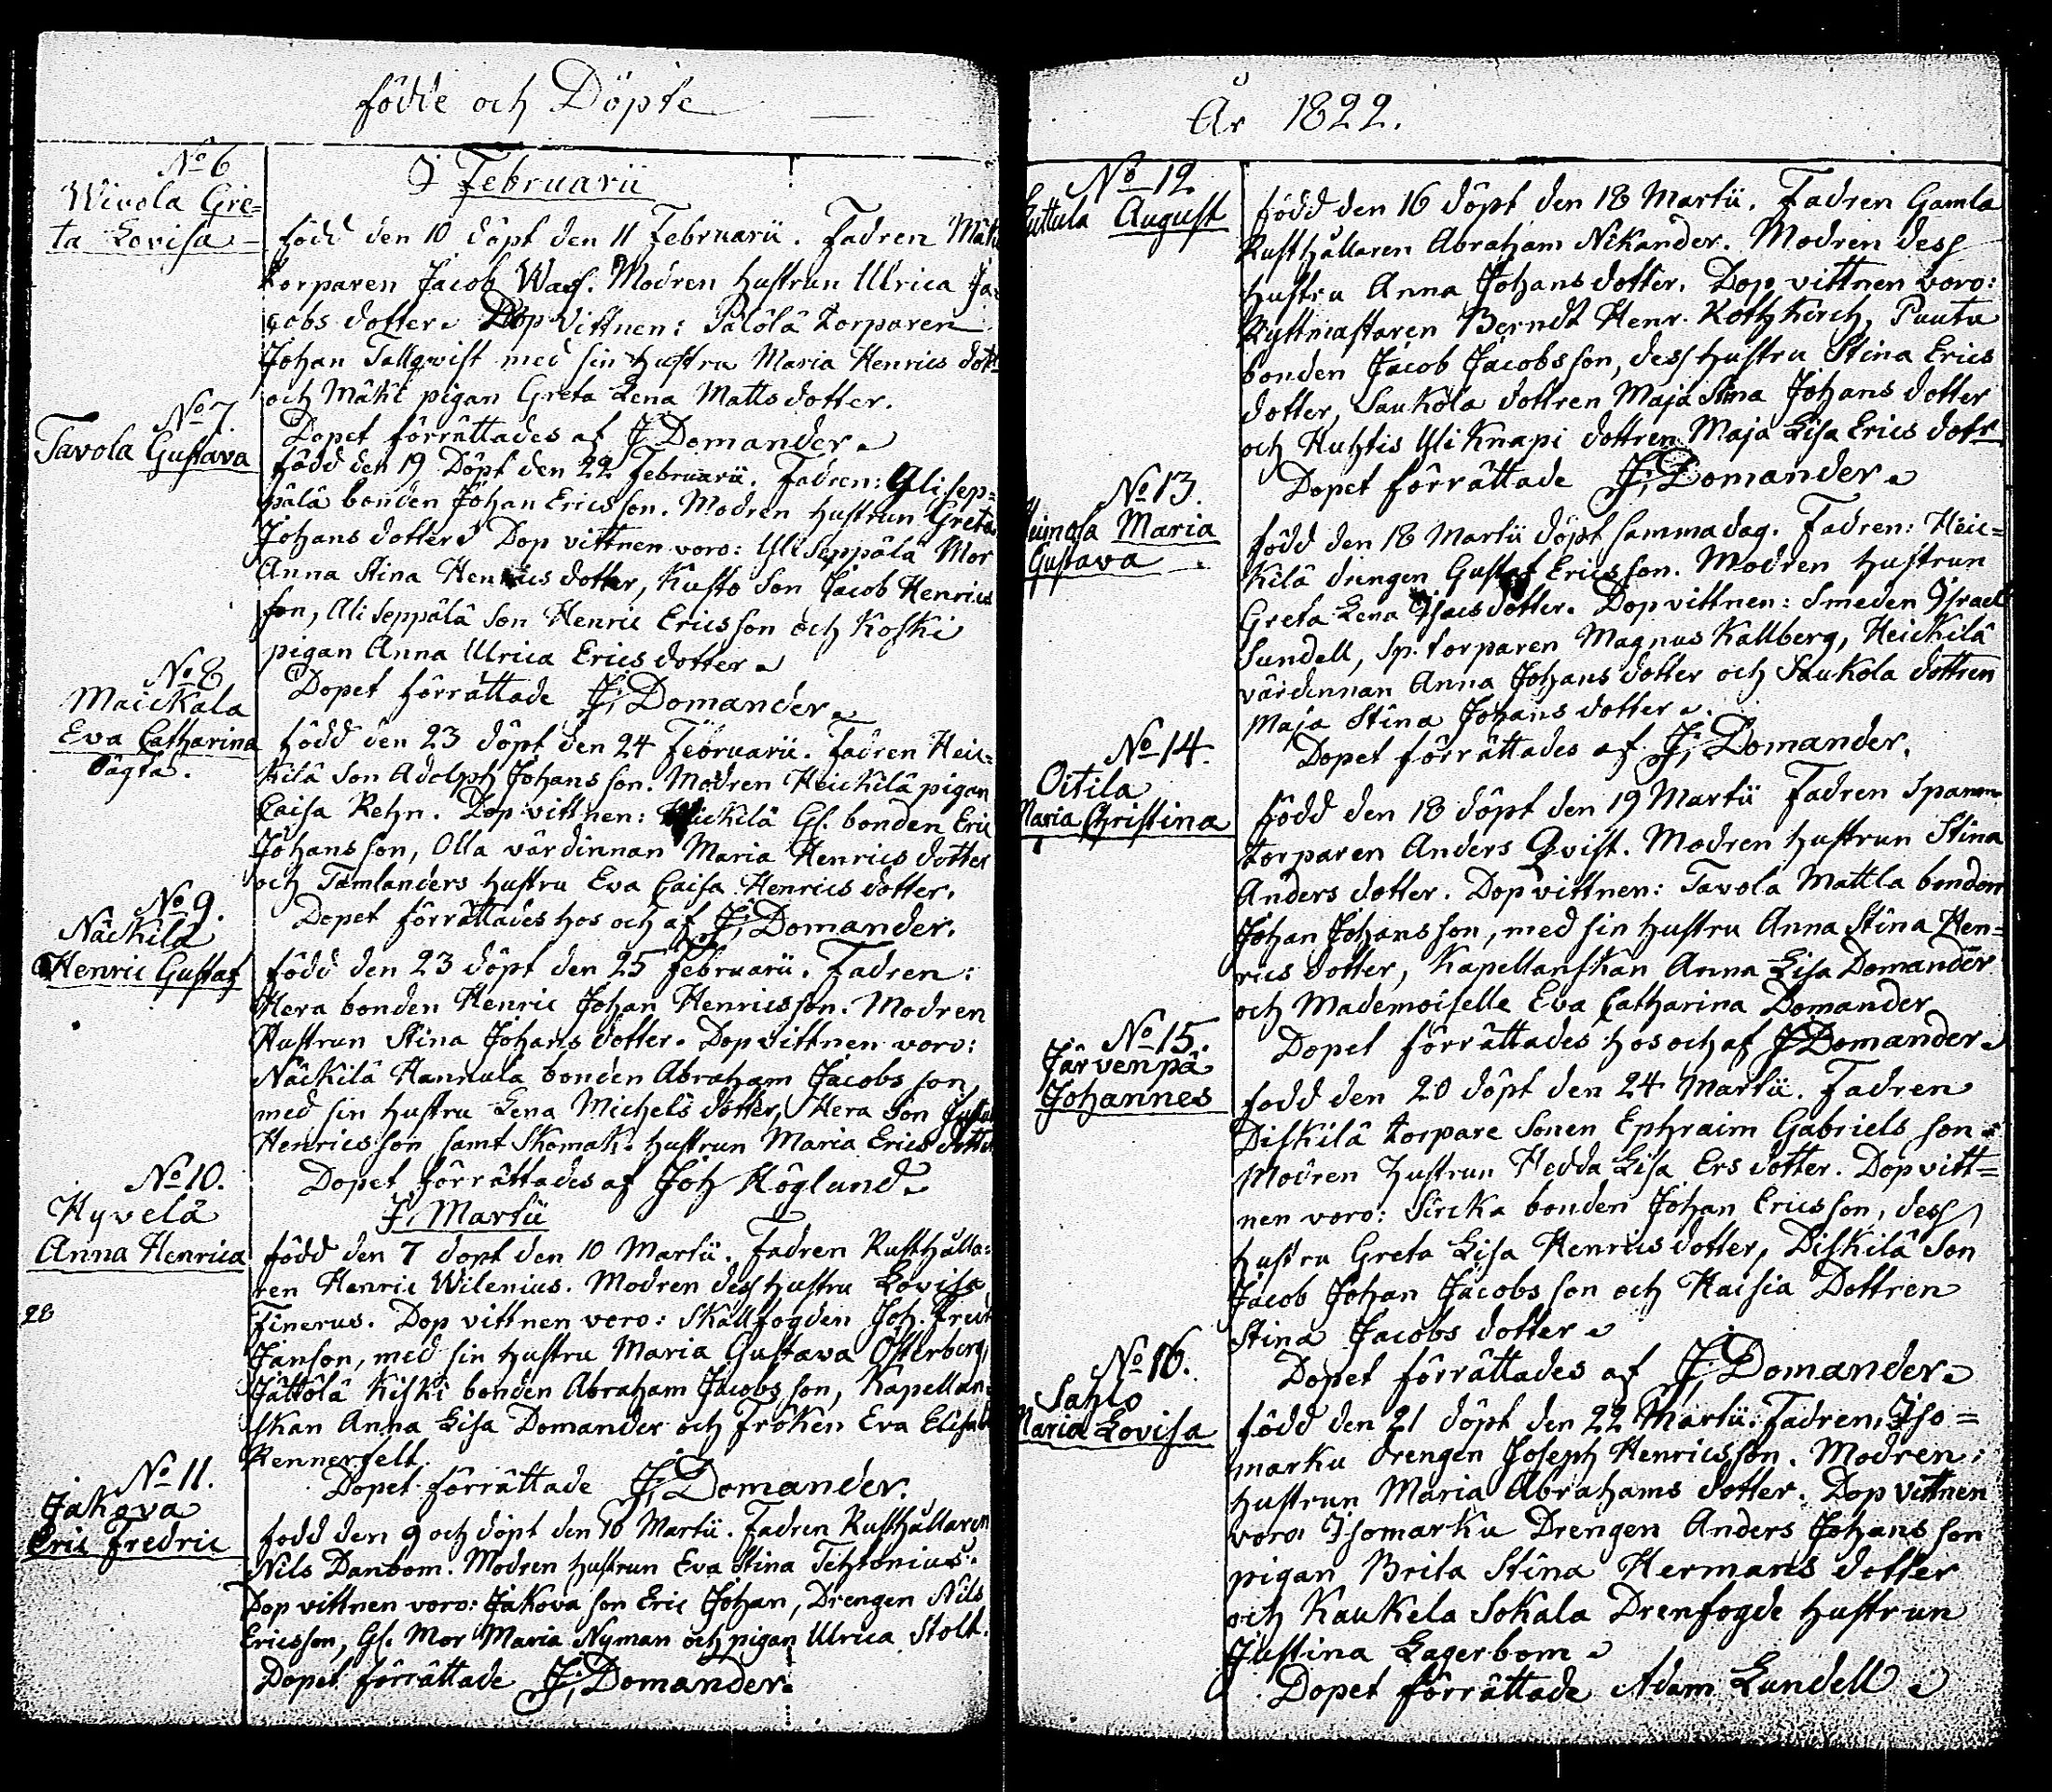 födde och Döpte
No 6
Wivola Gre=
ta Lovisa
I Februarii
född den 10 döpt den 11 Februarii. Fadren
torparen Jacob Warf. Modren Hustrun Ulrica Ja=
cobs dotter. Dop Vittnen: Sälölä torparen
Johan Tallqvist med sin hustru Maria Henrics dott
och Mäki pigan Greta Lena Matts dotter.
Dopet förrättades af J. Domander.
No 7.
Tavola Gustava
född den 19 Döpt den 22 Februarii. Fadren: Alisep=
pälä bonden Johan Ericsson. Modren Hustrun Greta
Johans dotter. Dop vittnen voro: Yliseppälä Mor
Anna Stina Henrics dotter, Kusto Son Jacob Henrics
son, Ali seppälä son Henric Ericsson och Koski
pigan Anna Ulrica Erics dotter.
Dopet förrättade J. Domander.
No 8
Maickala
Eva Catharina
oägta.
född den 23 döpt den 24 Februarii. Fadren Heic=
kilä Son Adolph Johansson. Modren Heickilä pigan
Caisa Rehn. Dop vittnen: Heickilä Gl. bonden Eric
Johansson, Olla värdinnan Maria Henrics dotter
och Tamlanders hustru Eva Caisa Henrics dotter.
Dopet förrättades hos och af J. Domander.
No 9.
Näckilä
Henric Gustaf
född den 23 döpt den 25 Februarii. Fadren:
Hera bonden Henric Johan Henricsson. Modren
Hustrun Stina Johans dotter. Dop vittnen voro:
Näckilä Hannula bonden Abraham Jacobs son
med sin hustru Lena Michels dotter, Hera son
Henricsson samt Skomak. hustrun Maria Erics dotter
Dopet förrättades af Joh Höglund.
No 10.
Hyvelä
Anna Henrica
28
I Martii
född den 7 döpt den 10 Martii. Fadren Rusthålla=
ren Henric Wilenius. Modren dess Hustru Lovisa
Finerus. Dop vittnen voro: Skallfogden Joh.
Janson, med sin hustru Maria Gustava Österberg,
Jättölä Kiski bonden Abraham Jacobs son, Kapellan=
skan Anna Lisa Domander och Fröken Eva Elisab
Rennerfelt.
Dopet förrättade J. Domander.
No 11.
Jakova
Eric Fredric
född den 9 och döpt den 10 Martii. Fadren Rusthållaren
Nils Danbom. Modren Hustrun Eva Stina Tehtonius.
Dop vittnen voro: Jakova son Eric Johan, Drengen Nils
Ericsson, Gl. Mor Maria Nyman och pigan Ulrica Stolt.
Dopet förrättade J. Domander.
År 1822.
No 12.
August
född den 16 döpt den 18 Martii. Fadren Gamla
Rusthållaren Abraham Nikander. Modren dess
hustru Anna Johans dotter. Dop vittnen voro:
Ryttmästaren Berndt Henr. Kothkirch, Puutu
bonden Jacob Jacobsson, dess hustru Stina Erics
dotter, Saukola dottren Maja Stina Johans dotter
och Huhtis Yli Knapi dottren Maja Lisa Erics dotr
Dopet förrättade J. Domander.
No 13.
Maria
Gustava
född den 18 Martii döpt samma dag. Fadren: Heic=
kilä drengen Gustaf Ericsson. Modren Hustrun
Greta Lena Isacs dotter. Dop vittnen: Smeden Israel
Sundell, Sp. torparen Magnus Kallberg, Heickilä
värdinnan Anna Johans dotter och Saukola dottren
Maja Stina Johans dotter.
Dopet förrättades af J. Domander.
No 14.
Oitila
Maria Christina
född den 18 döpt den 19 Martii Fadren Spanm
torparen Anders Qvist. Modren Hustrun Stina
Anders dotter. Dop vittnen: Tavola Mattla bonden
Johan Johansson, med sin hustru Anna Stina Hen=
rics dotter, Kapellanskan Anna Lisa Domander
och Mademoiselle Eva Catharina Domander
Dopet förrättades hos och af J Domander.
No 15.
Järvenpä
Johannes
född den 20 döpt den 24 Martii. Fadren
Diskilä torpare Sonen Ephraim Gabriels son.
Modren Hustrun Hedda Lisa Ers dotter. Dop vitt=
nen voro: Sircka bonden Johan Ericsson, dess
hustru Greta Lisa Henricsdotter, Diskilä Son
Jacob Johan Jacobs son och Haisia Dottren
Stina Jacobs dotter.
Dopet förrättades af J. Domander.
No 16.
Sahlo
Maria Lovisa
född den 21 döpt den 22 Martii. Fadren Iso=
marku drengen Joseph Henricsson. Modren:
Hustrun Maria Abrahams dotter. Dop vittnen
voro: Isomarku Drengen Anders Johans son
pigan Brita Stina Hermans dotter
och Kaukela Sokala Drenfogde Hustrun
Justina Lagerbom.
Dopet förrättade Adam Lundell.